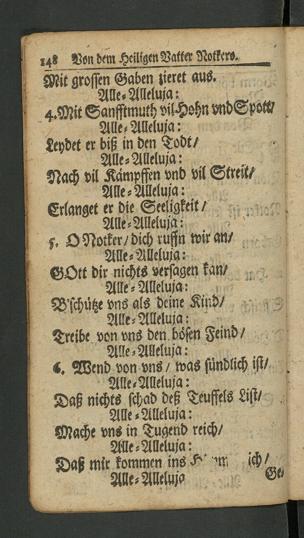 148 Von dem Heiligen Vatter Notkero.
Mit grossen Gaben zieret aus.
Alle-Alleluja:
4. Mit Sanfftmuth vil-Hohn vnd Spott/
Alle-Alleluja:
Leydet er biß in den Todt/
Alle-Alleluja:
Nach vil Kämpffen vnd vil Streit/
Alle-Alleluja:
Erlanget er die Seeligkeit/
Alle-Alleluja:
5. O Notker/ dich ruffn wir an/
Alle-Alleluja:
GOtt dir nichts versagen kan/
Alle-Alleluja:
B'schütze vns als deine Kind/
Alle-Alleluja:
Treibe von vns den bösen Feind/
Alle-Alleluja:
6. Wend von vns/ was sündlich ist/
Alle-Alleluja:
Daß nichts schad deß Teuffels List/
Alle-Alleluja:
Mache vns in Tugend reich/
Alle-Alleluja:
Daß mir kommen ins
Alle-Alleluja
Ge-